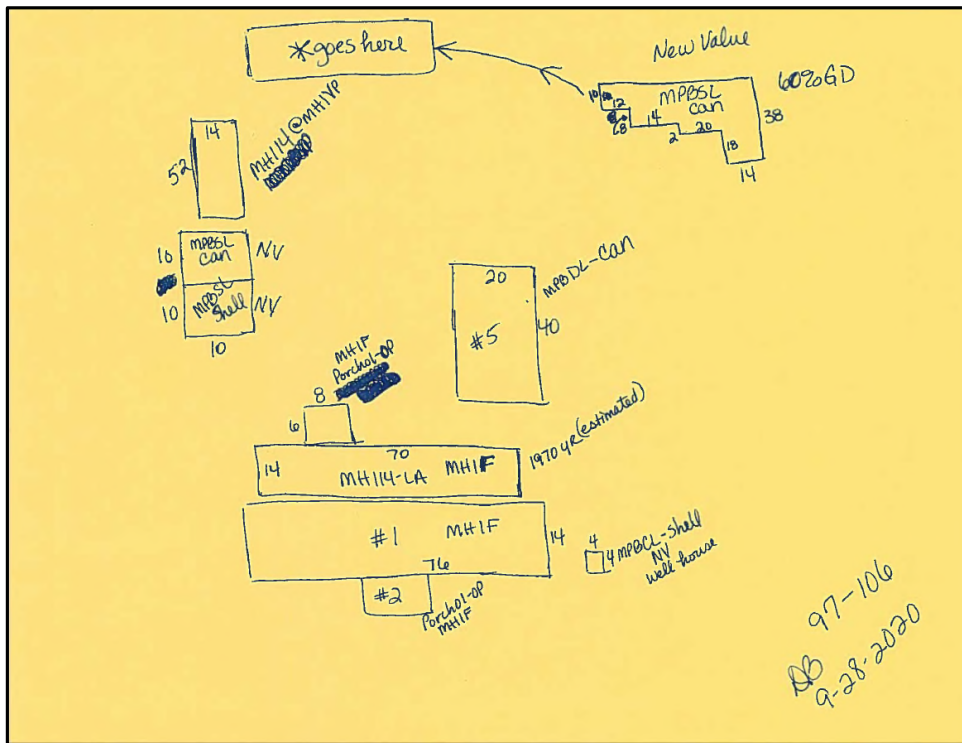 *goes here
New Value
60%GD
MPBSL
can
10
12
8
14
2
20
18
38
14
14
52
MH114@MH1VP
10
MPBSL
can
NV
10
MPBSL
Shell
NV
10
20
MPBDL-can
#5
40
MH1F
Porch01-OP
8
6
70
14
MH114-LA MH1F
1970 YR (estimated)
#1 MH1F
14
76
#2
Porch01-OP
MH1F
4
4 MPBCL-Shell
NV
well house
97-106
DB
9-28-2020